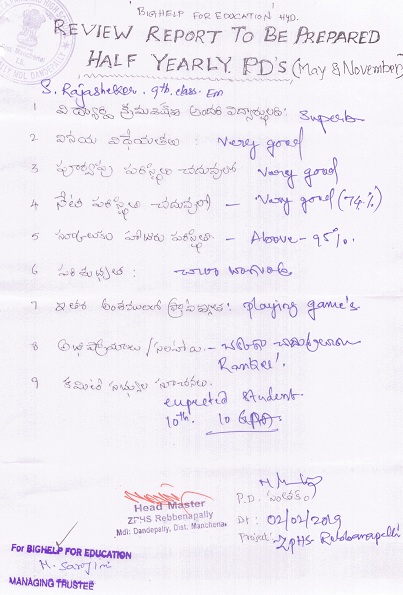 BIGHELP FOR EDUCATION HYD.
REVIEW REPORT TO BE PREPARED
HALF YEARLY. P.D's (May & November)
S. Rajasheker. 9th. class. Em
1 విద్యార్థి క్రమశిక్షణ : Superb
2 వినయ విధేయతలు : Very good
3 చదువులో Very good
4 నేటి పరిస్థితి చదువులో - Very good (74%)
5 హాజరు పరిస్థితి - Above - 95%.
6 పరిశుభ్రత : చాలా బాగుంది
7 ఇతర అంశములలో : playing game's
8 అభిప్రాయాలు / సలహాలు. -
Ranker'.
9 కమిటి సభ్యుల సూచనలు.
student
10th. 10 GPA.
Head Master
ZPHS Rebbenapally
Mdl: Dandepally, Dist. Mancherial
P.D. సంతకం
Dt: 02/02/2019
Project: ZPHS- Rebbanapelli
For BIGHELP FOR EDUCATION
M. Sarojini
MANAGING TRUSTEE